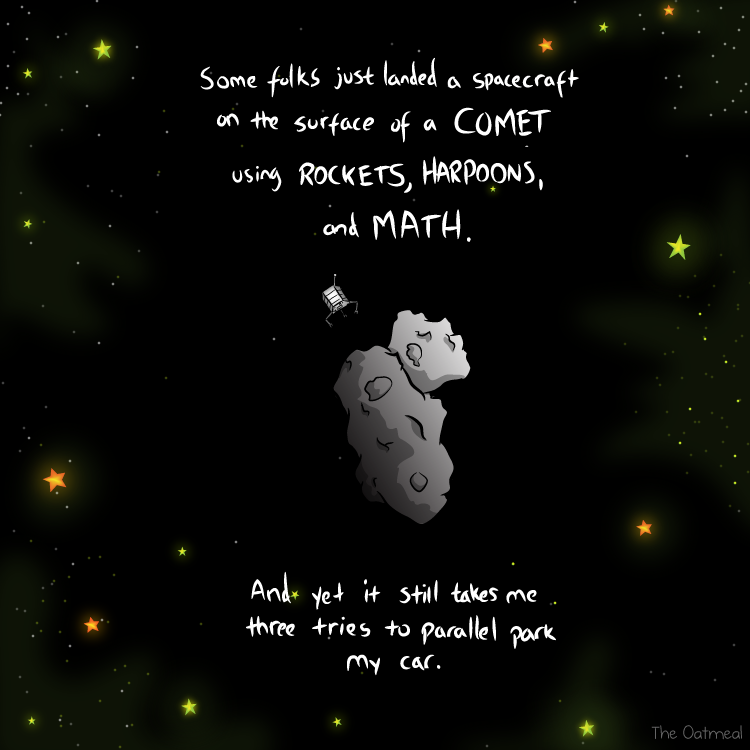 Some folks just landed a spacecraft
on the surface of a COMET
using ROCKETS, HARPOONS,
and MATH.
And yet it still takes me
three tries to parallel park
my car.
The Oatmeal